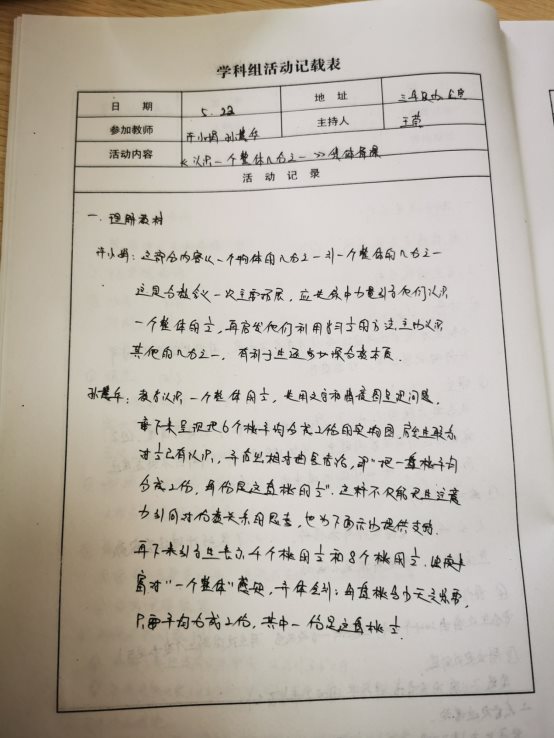 学科组活动记载表
日 期 5.22 地 址 三年级办公室
参加教师 许小娟 孙慧 主持人 王
活动内容 《认识一个整体几分之一》集体备课
活 动 记 录
一. 理解教材
许小娟：这部分内容从一个物体的几分之一到一个整体的几分之一
这是分数含义一次主要拓展，应集中力量引导他们认识
一个整体的1/2，再启发他们利用学习1/2的方法主动认识
其他的几分之一，有利于逐步加深分数本质.
孙慧：教学认识一个整体的1/2，是用文字和情境图呈现问题，
接下来呈现把6个桃平均分成2份的实物图，启发生联系
对1/2已有认识，并有出相对的结论，即“把一盘桃平均
分成2份，每份是这盘桃的1/2”. 这样不仅能把生注意
力引向对份数关系的思考，也为下面示范提供支持.
再下来引导生表示4个桃的1/2和8个桃的1/2.
富对“一个整体”感知，并体会到：每盘桃多少无关紧要，
只要平均分成2份，其中一份是这盘桃1/2.